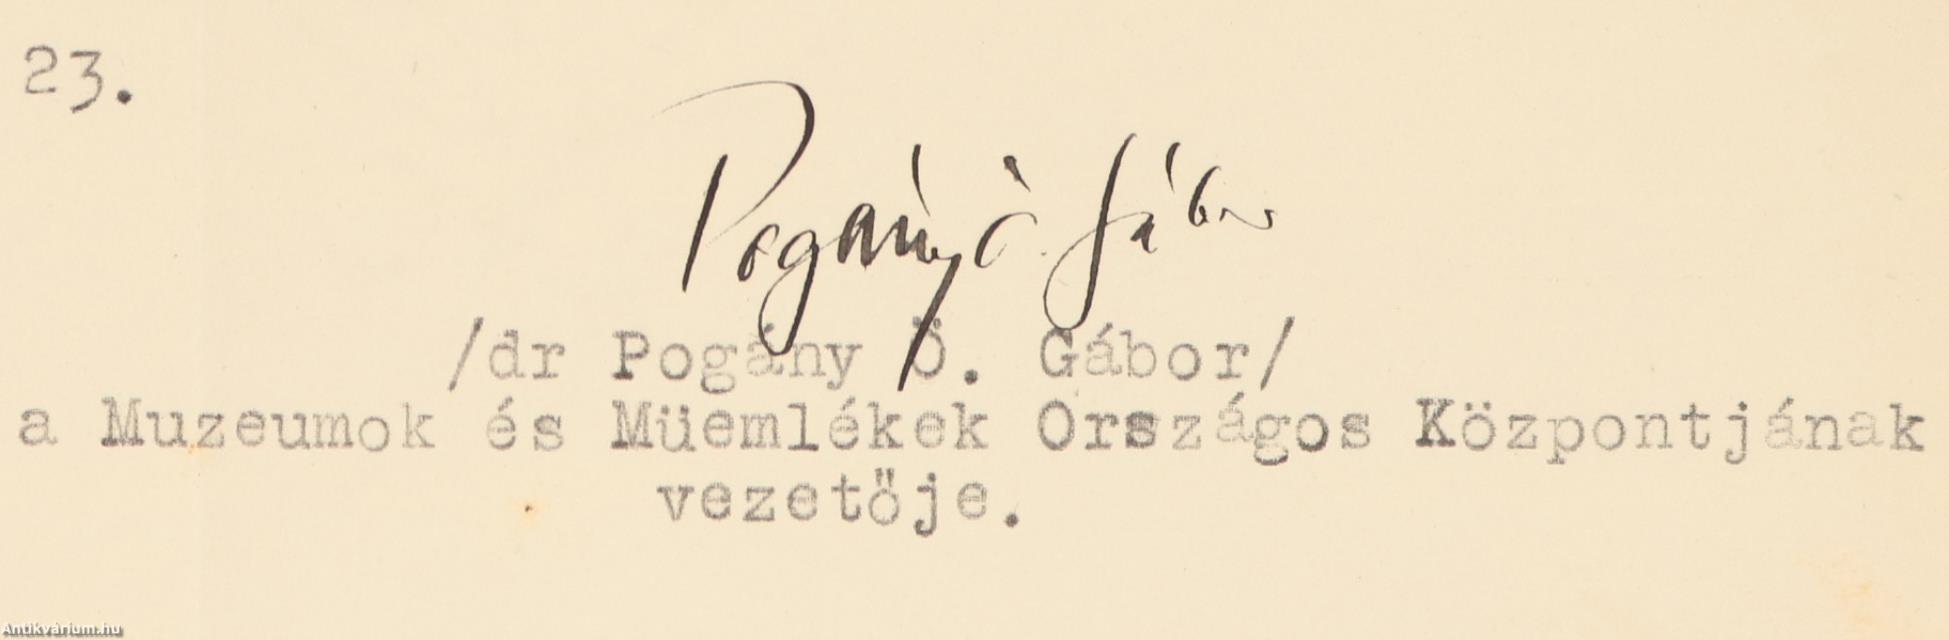 23.
Pogány Ö. Gábor
/dr Pogány Ö. Gábor/
a Muzeumok és Müemlékek Országos Központjának
vezetője.
Antikvárium.hu